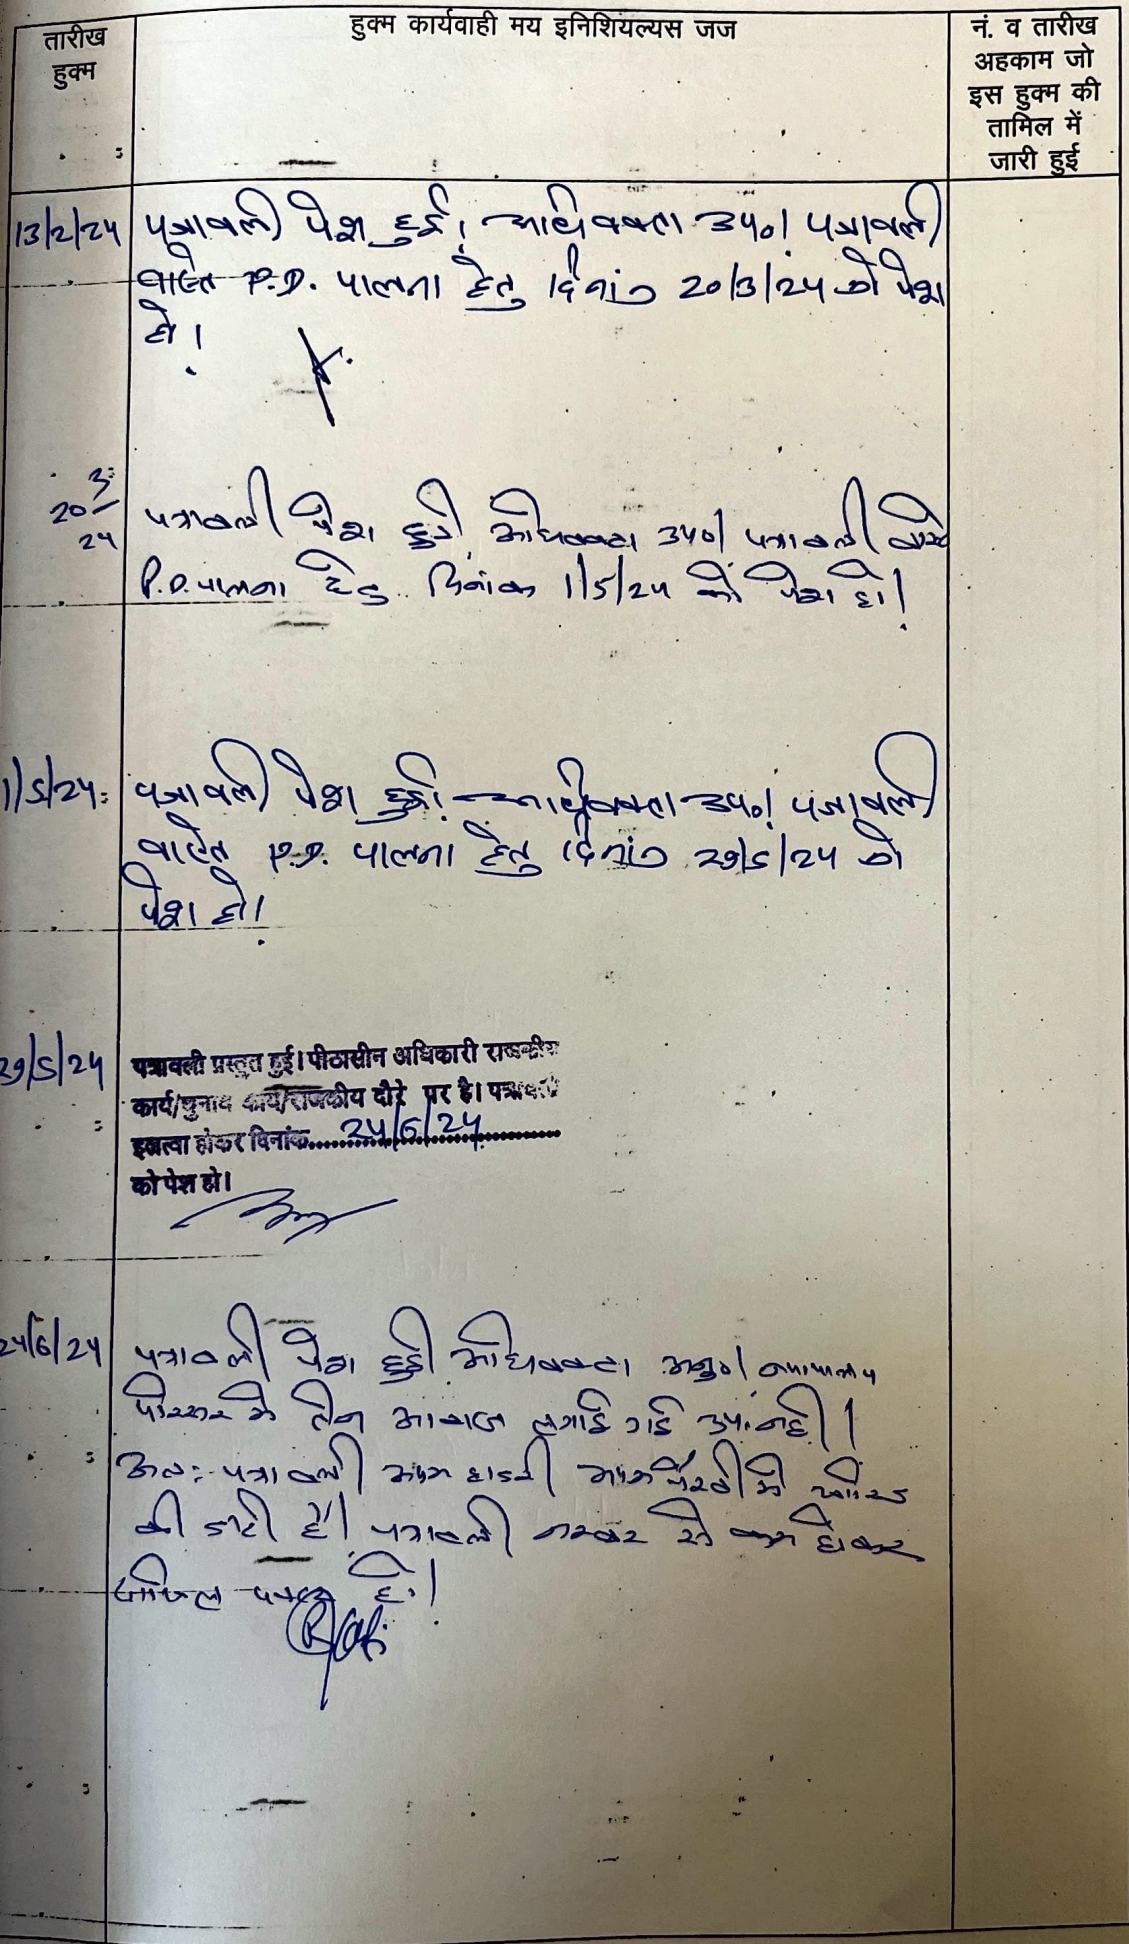 तारीख
हुक्म
हुक्म कार्यवाही मय इनिशियल्यस जज
नं. व तारीख
अहकाम जो
इस हुक्म की
तामिल में
जारी हुई
13/2/24 पत्रावली पेश हुई। अधिवक्ता उप०। पत्रावली
वास्ते P.D. पालना हेतु दिनांक 20/3/24 को पेश
हो।
20/3/24 पत्रावली पेश हुई अधिवक्ता उप०। पत्रावली वास्ते
P.D. पालना हेतु दिनांक 1/5/24 को पेश हो।
1/5/24 पत्रावली पेश हुई। अधिवक्ता उप०। पत्रावली
वास्ते P.D. पालना हेतु दिनांक 29/5/24 को
पेश हो।
29/5/24 पत्रावली प्रस्तुत हुई। पीठासीन अधिकारी राजकीय
कार्य/चुनाव कार्य/राजकीय दौरे पर है। पत्रावली
इल्तवा होकर दिनांक 24/6/24
को पेश हो।
24/6/24 पत्रावली पेश हुई अधिवक्ता अनु०। न्यायालय
परिसर में तीन आवाज लगाई गई उप. नहीं।
अतः पत्रावली अदम हाजरी अदम पैरवी में खारिज
की जाती है। पत्रावली नम्बर से कम होकर
दाखिल दफ्तर हो।